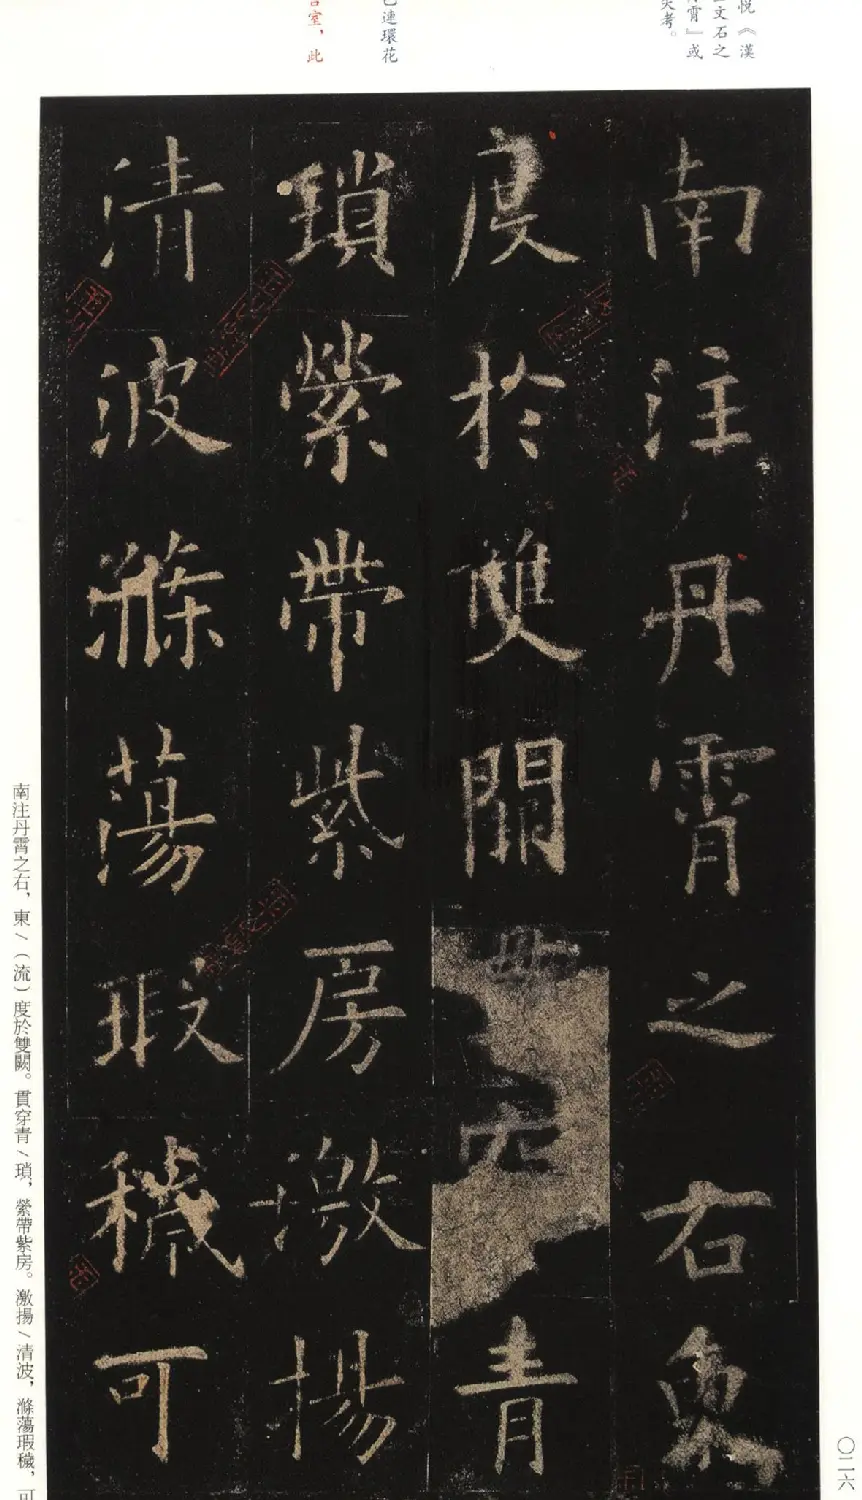 悅《漢
文石之
霄』或
失考。
連環花
室，此
南注丹霄之右東
度於雙闕青
瑣縈帶紫房激揚
清波滌蕩瑕穢可
南注丹霄之右，東\（流）度於雙闕。貫穿青\瑣，縈帶紫房。激揚\清波，滌蕩瑕穢，可
〇二六